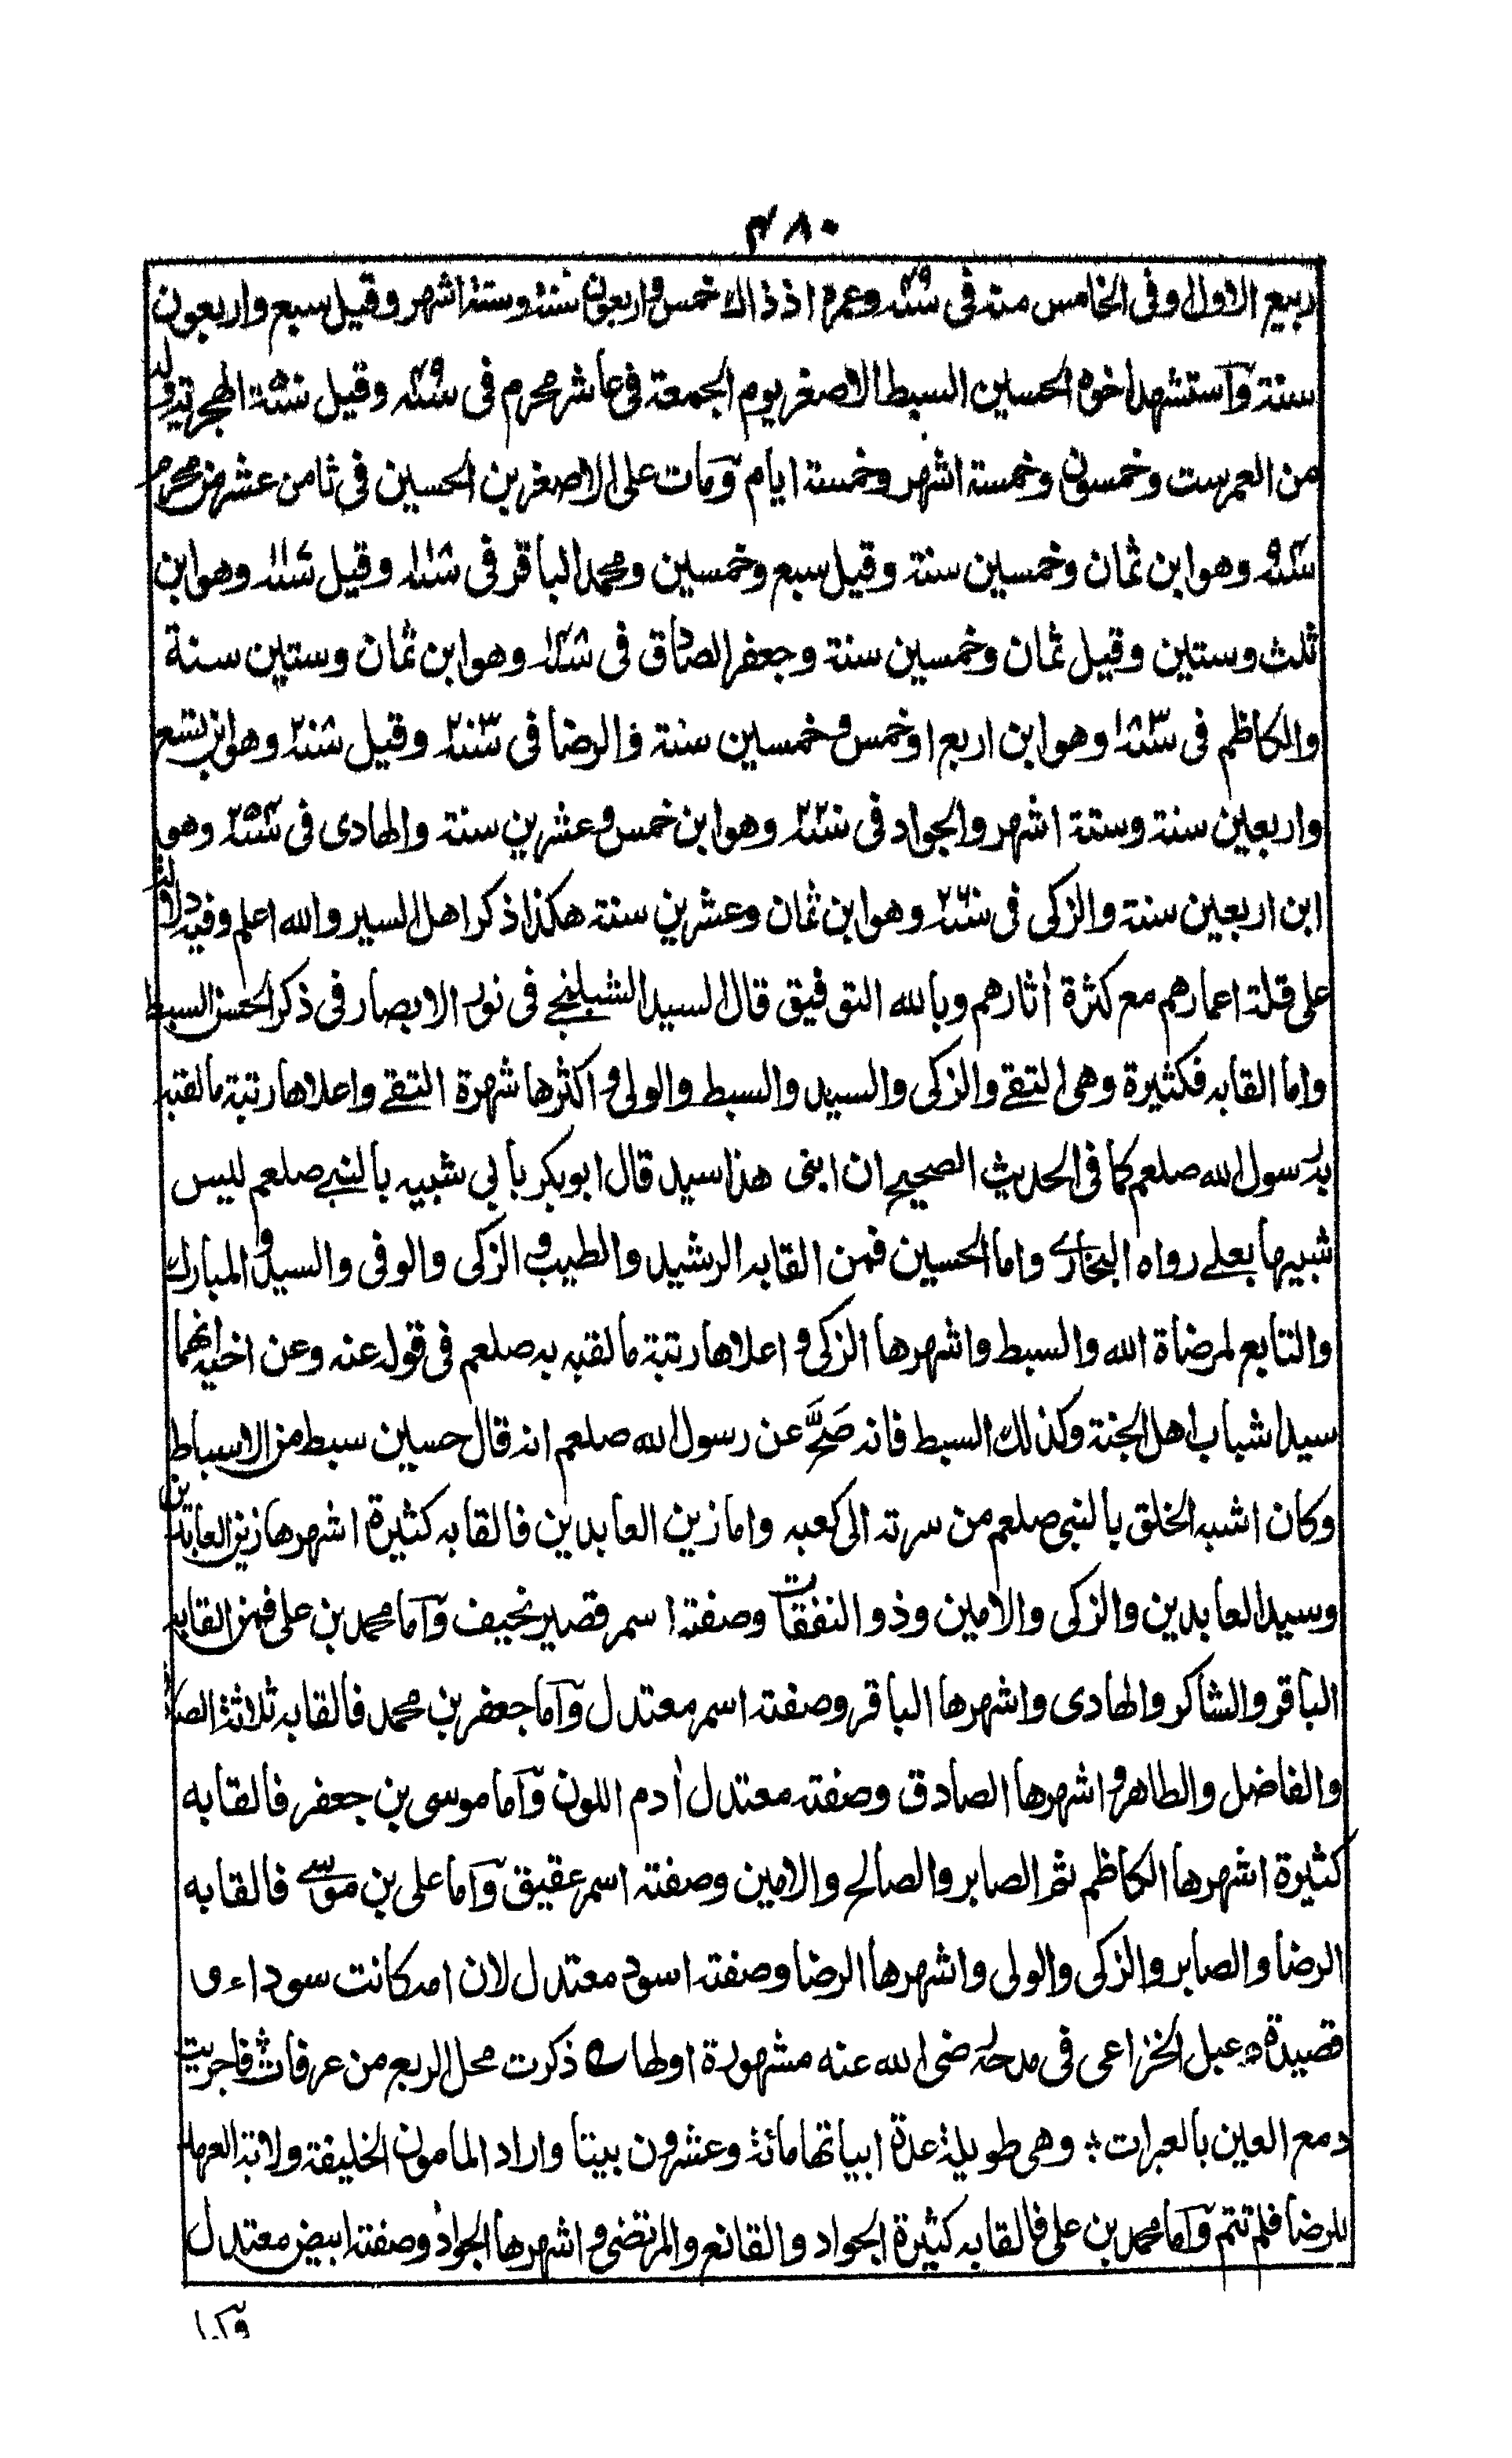 ۴۸۰
ربيع الاول وفى الخامس منه فى سنة ۴۹ وعمره اذ ذاك خمس واربعون سنة وستة اشهر وقيل سبع واربعون
سنة وآستشهد اخوه الحسين السبط الاصغر يوم الجمعة فى عاشر محرم فى وقيل سنة الهجرية وله
من العمر ست وخمسون وخمسة اشهر وخمسة ايام وَمات على الاصغر بن الحسين فى ثامن عشر من محرم
سنة ۹۴ وهو ابن ثمان وخمسين سنة وقيل سبع وخمسين ومحمد الباقر فى وقيل وهو ابن
ثلث وستين وقيل ثمان وخمسين سنة وجعفر الصادق فى سنة ۱۴۸ وهو ابن ثمان وستين سنة
والكاظم فى سنة ۱۸۳ وهو ابن اربع او خمس وخمسين سنة والرضا فى سنة ۲۰۳ وقيل وهو ابن تسع
واربعين سنة وستة اشهر والجواد فى سنة ۲۲۰ وهو ابن خمس وعشرين سنة والهادى فى سنة ۲۵۴ وهو
ابن اربعين سنة والزكى فى سنة ۲۶۰ وهو ابن ثمان وعشرين سنة هكذا ذكر اهل السير والله اعلم وفيه دلالة
على قلة اعمارهم مع كثرة أثارهم وبالله التوفيق قال السيد الشبلنجے فى نور الابصار فى ذكر الحسن السبط
واما القابه فكثيرة وهى التقے والزكى والسيد والسبط والولى و اكثرها شهرة التقے واعلاها رتبة ما لقبه
به رسول الله صلعم كما فى الحديث الصحيح ان ابنى هذا سيد قال ابو بكر بأبى شبيه بالنبے صلعم ليس
شبيها بعلے رواه البخارى واما الحسين فمن القابه الرشيد والطيب و الزكى والوفى والسيد و المبارك
والتابع لمرضاة الله والسبط واشهرها الزكى و اعلاها رتبة ما لقبه به صلعم فى قوله عنه وعن اخيه انهما
سيدا شباب اهل الجنة وكذلك السبط فانه صَحَّ عن رسول الله صلعم انه قال حسين سبط من الاسباط
وكان اشبه الخلق بالنبى صلعم من سرته الى كعبه واما زين العابدين فالقابه كثيرة اشهرها زين العابدين
وسيد العابدين والزكى والامين وذو النفقات وصفته اسمر قصير نحيف وَآما محمد بن على فمن القابه
الباقر والشاكر والهادى واشهرها الباقر وصفته اسمر معتدل وَآما جعفر بن محمد فالقابه ثلاثة الصادق
والفاضل والطاهر و اشهرها الصادق وصفته معتدل أدم اللون وَآما موسى بن جعفر فالقابه
كثيرة اشهرها الكاظم ثم الصابر والصالح والامين وصفته اسمر عقيق وَآما على بن موسے فالقابه
الرضا والصابر والزكى والولى واشهرها الرضا وصفته اسود معتدل لان امه كانت سوداء و
قصيدة دعبل الخزاعى فى مدحه رضى الله عنه مشهورة اولها ے ذكرت محل الربع من عرفات ؛ فاجريت
دمع العين بالعبرات ؛ وهى طويلة عدة ابياتها مائة وعشرون بيتا واراد المامون الخليفة ولاتة العهد
للرضا فلم تتم وَآما محمد بن على فالقابه كثيرة الجواد والقانع والمرتضى و اشهرها الجواد وصفته ابيض معتدل